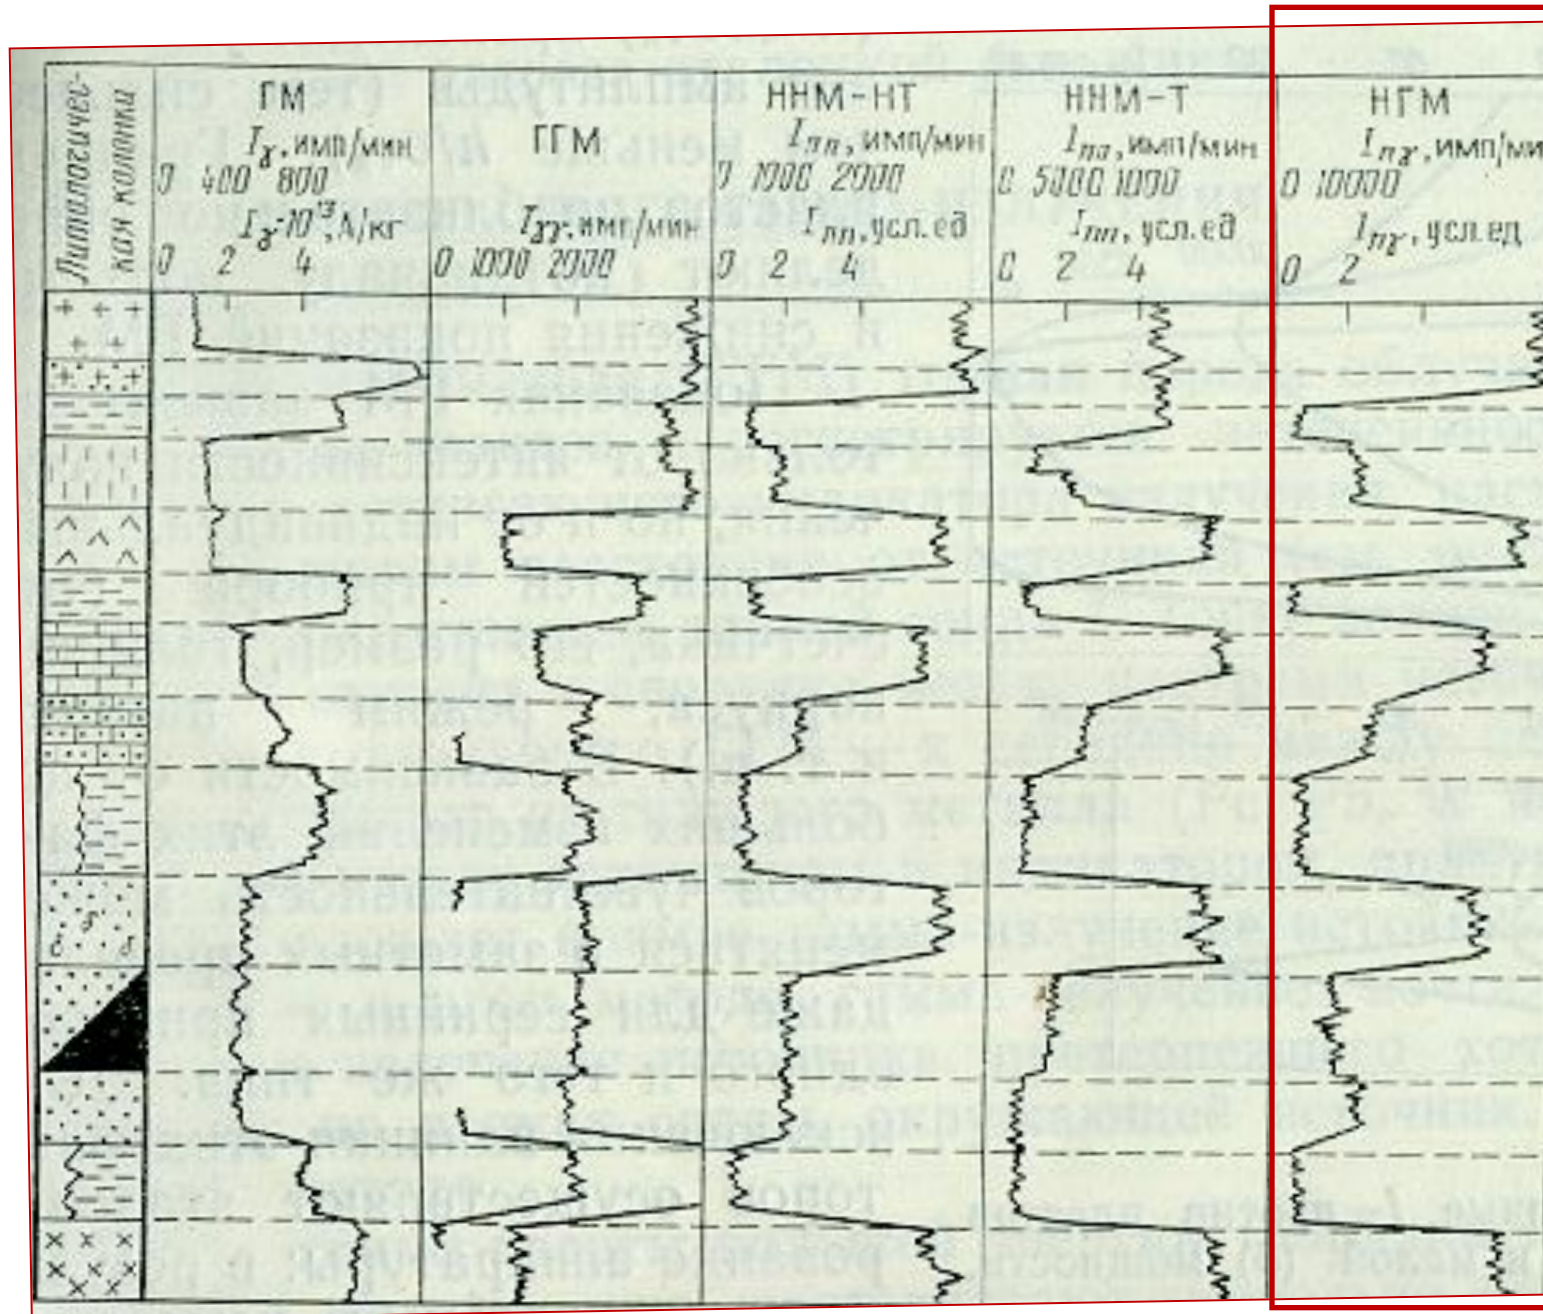 Литологичес-
кая колонка
ГМ
Iγ, имп/мин
0 400 800
Iγ·10⁻¹³, А/кг
0 2 4
ГГМ
Iγγ, имп/мин
0 1000 2000
ННМ-НТ
Inn, имп/мин
0 1000 2000
Inn, усл.ед
0 2 4
ННМ-Т
Inn, имп/мин
0 5000 1000
Inn, усл.ед
0 2 4
НГМ
Inγ, имп/ми
0 10000
Inγ, усл.ед
0 2